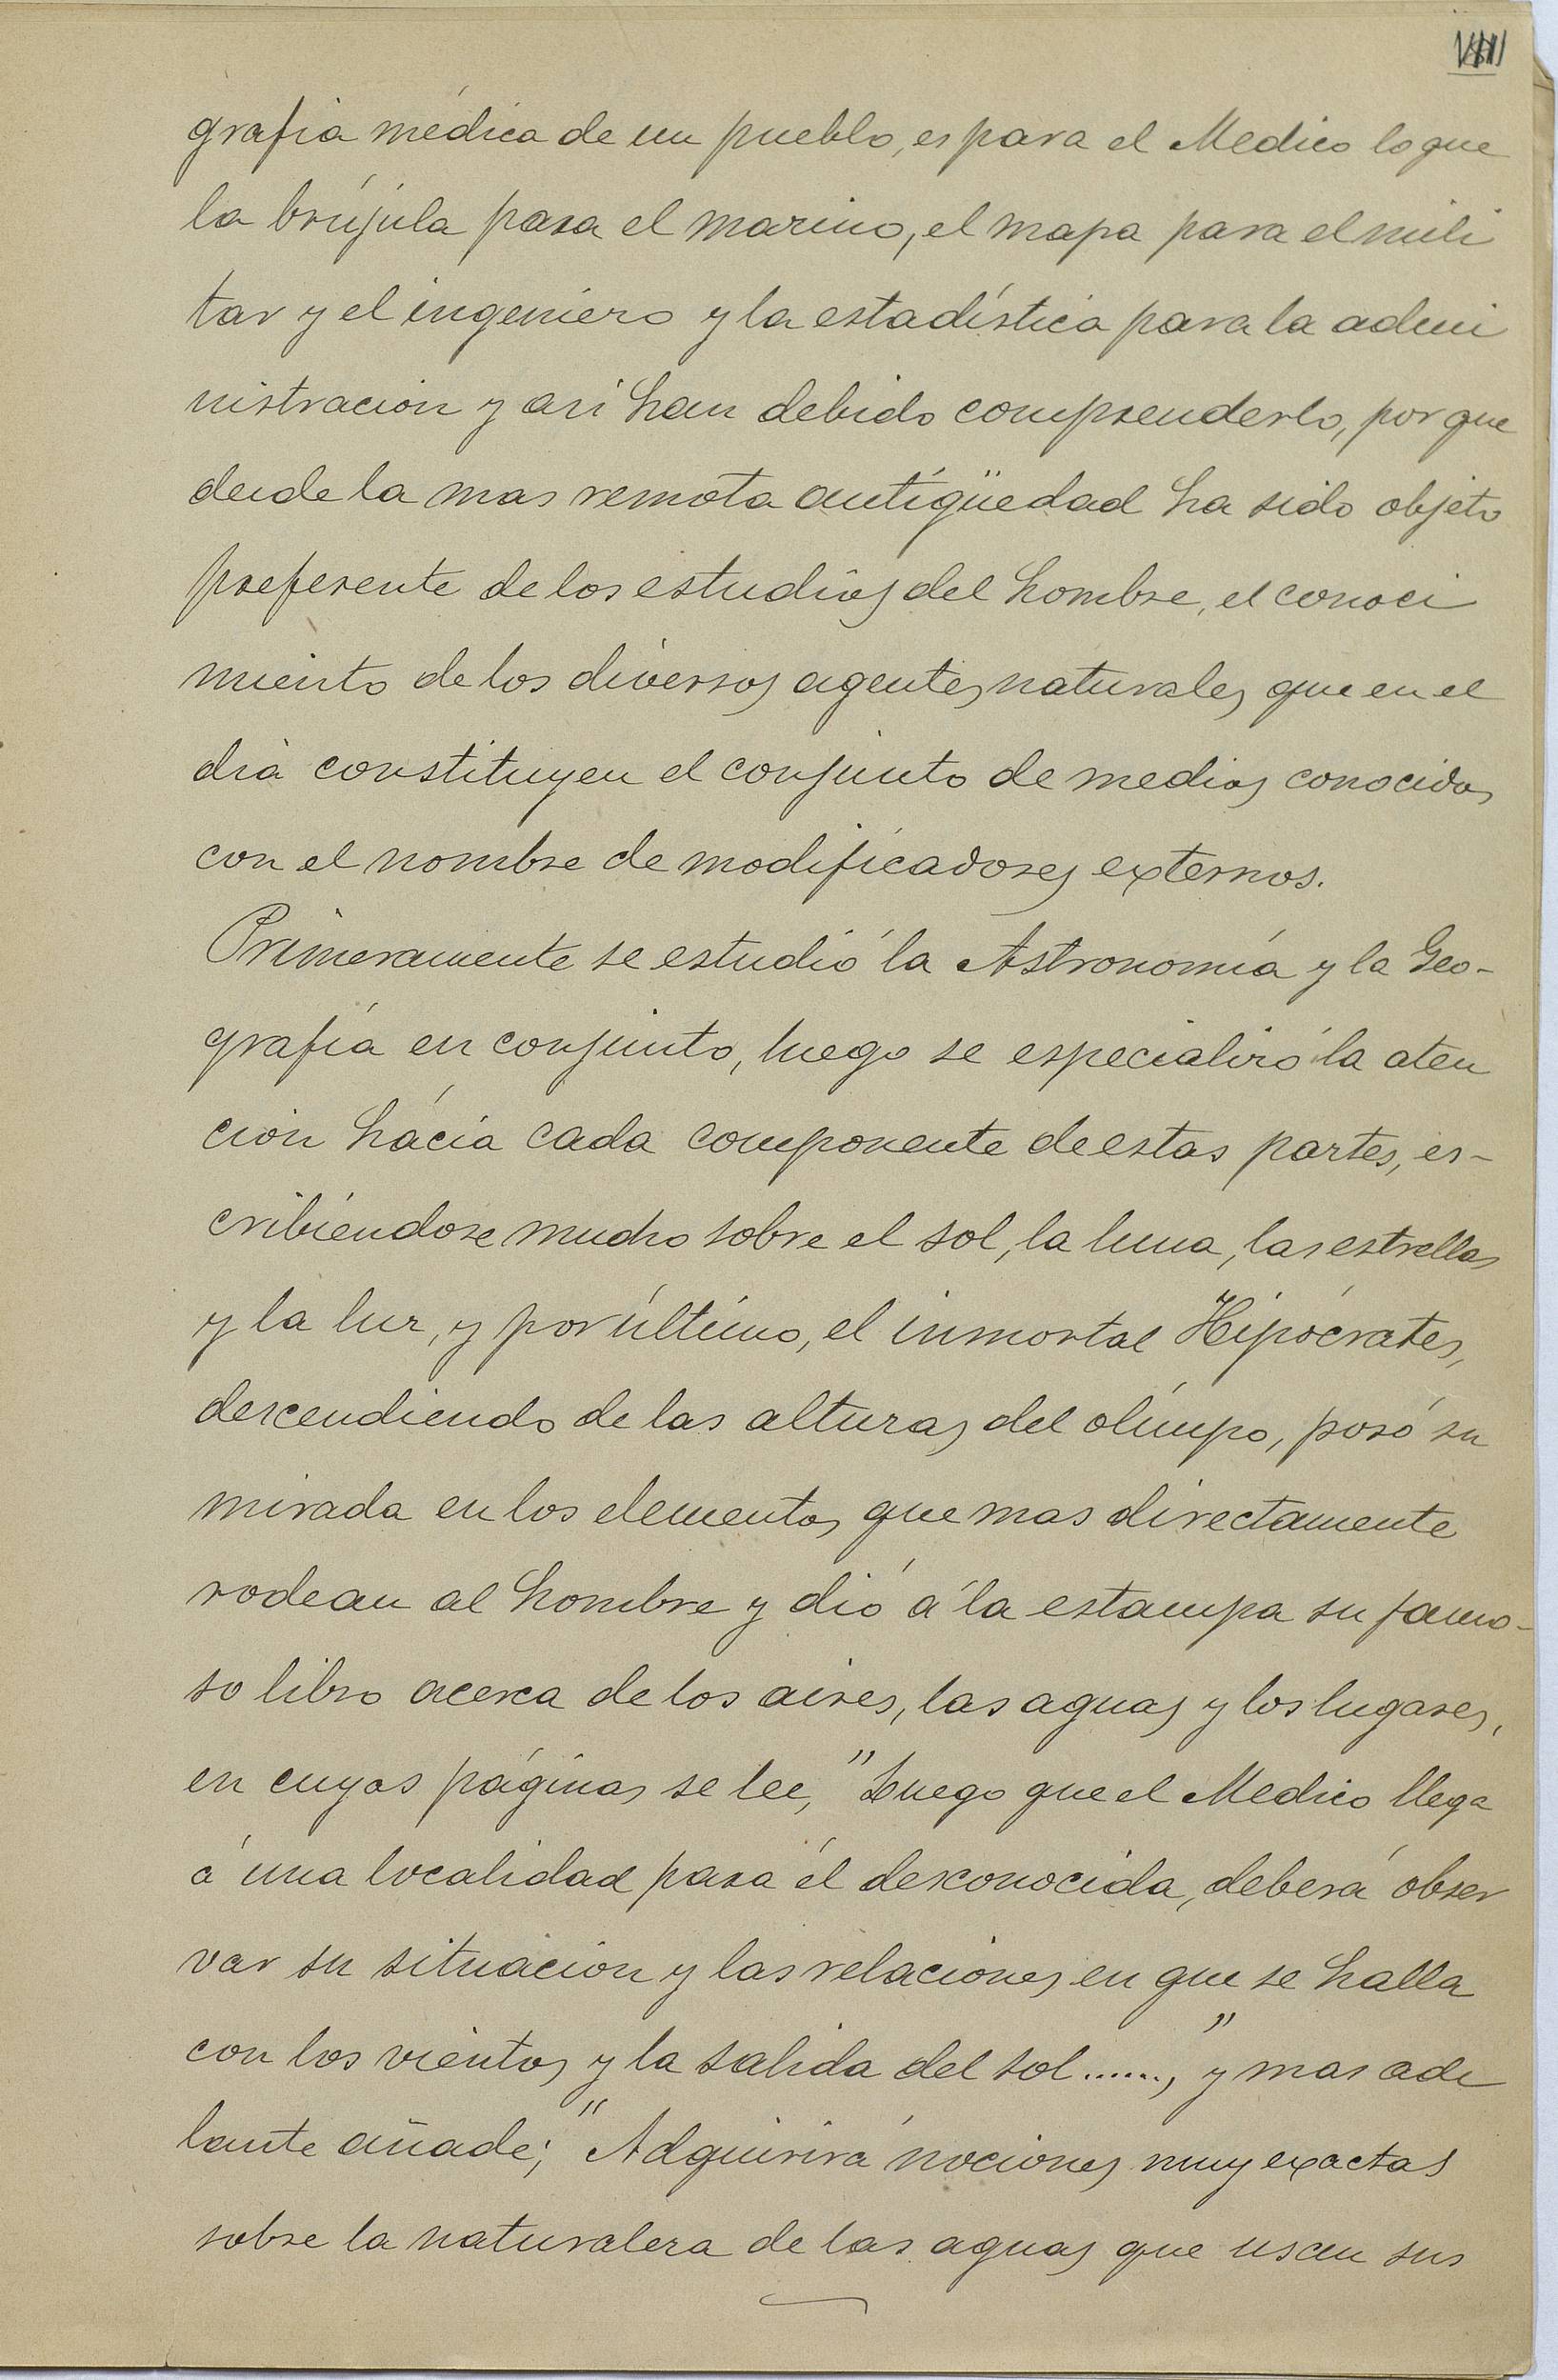 grafia médica de un pueblo, es para el Medico lo que
la brújula para el marino, el mapa para el mili
tar y el ingeniero y la estadística para la admi
nistracion y asi han debido comprenderlo, porque
desde la mas remota antigüedad ha sido objeto
preferente de los estudios del hombre, el conoci
miento de los diversos agentes naturales que en el
dia constituyen el conjunto de medios conocidos
con el nombre de modificadores externos.
Primeramente se estudió la Astronomía y la Geo-
grafía en conjunto, luego se especializó la aten
cion hácia cada componente de estas partes, es-
cribiéndose mucho sobre el sol, la luna, las estrellas
y la luz, y por último, el inmortal Hipócrates,
descendiendo de las alturas del olimpo, posó su
mirada en los elementos que mas directamente
rodean al hombre y dió á la estampa su famo-
so libro acerca de los aires, las aguas y los lugares,
en cuyas páginas se lee, "Luego que el Medico llega
á una localidad para él desconocida, deberá obser
var su situacion y las relaciones en que se halla
con los vientos y la salida del sol......," y mas ade
lante añade; "Adquirirá nociones muy exactas
sobre la naturaleza de las aguas que usan sus